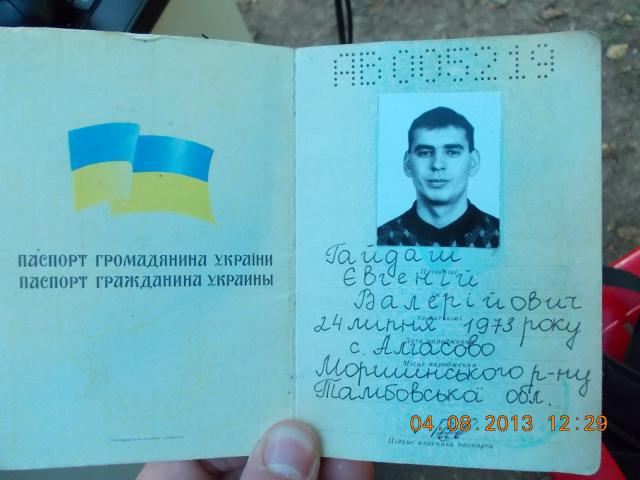 ПАСПОРТ ГРОМАДЯНИНА УКРАЇНИ
ПАСПОРТ ГРАЖДАНИНА УКРАИНЫ
АВ005219
Гайдаш
Прізвище
Євгеній
Валерійович
по батькові
24 липня 1973 року
Дата народження
с. Алгасово
Місце народження
Моршинського р-ну
Тамбовська обл.
Підпис власника паспорта
04.08.2013 12:29